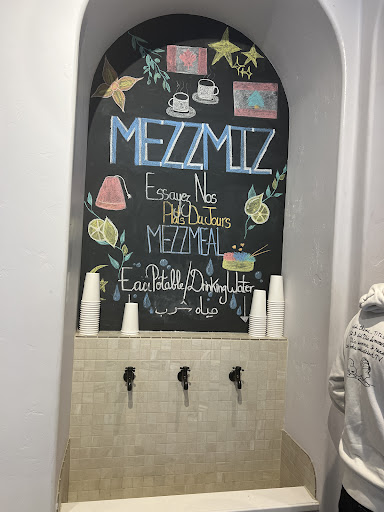 MEZZMIZ
Essayez Nos
Plats Du Jours
MEZZMEAL
Eau Potable/Drinking Water
مياه شرب